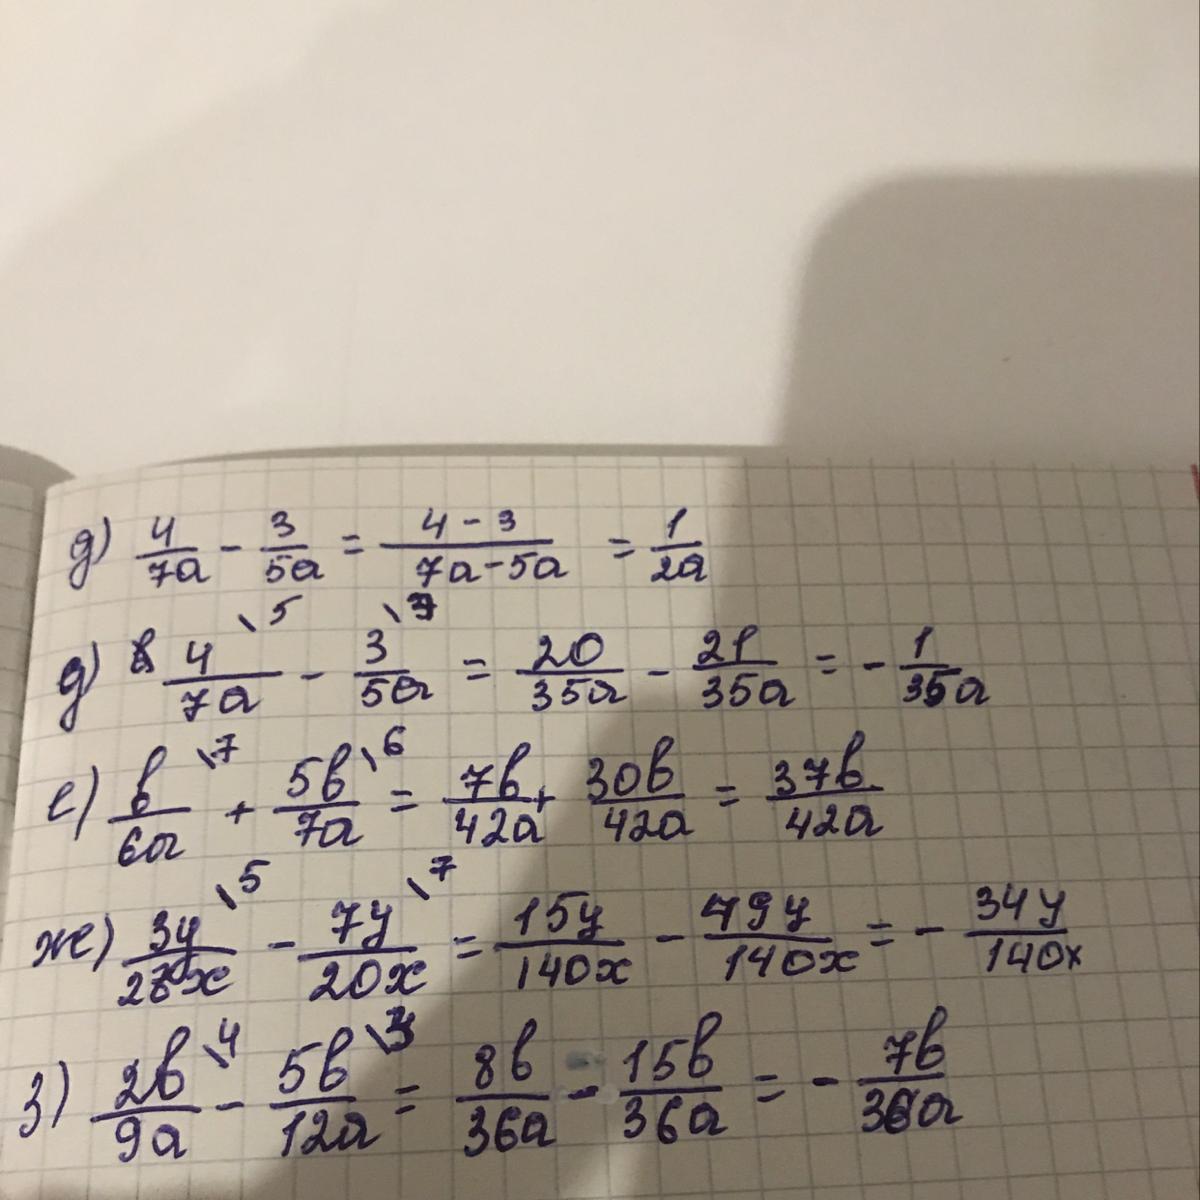 д) 4/7a - 3/5a = 4-3/7a-5a = 1/2a
д) 4/7a \5 - 3/5a \7 = 20/35a - 21/35a = - 1/35a
е) b/6a \7 + 5b/7a \6 = 7b/42a + 30b/42a = 37b/42a
ж) 3y/28x \5 - 7y/20x \7 = 15y/140x - 49y/140x = - 34y/140x
з) 2b/9a \4 - 5b/12a \3 = 8b/36a - 15b/36a = - 7b/36a